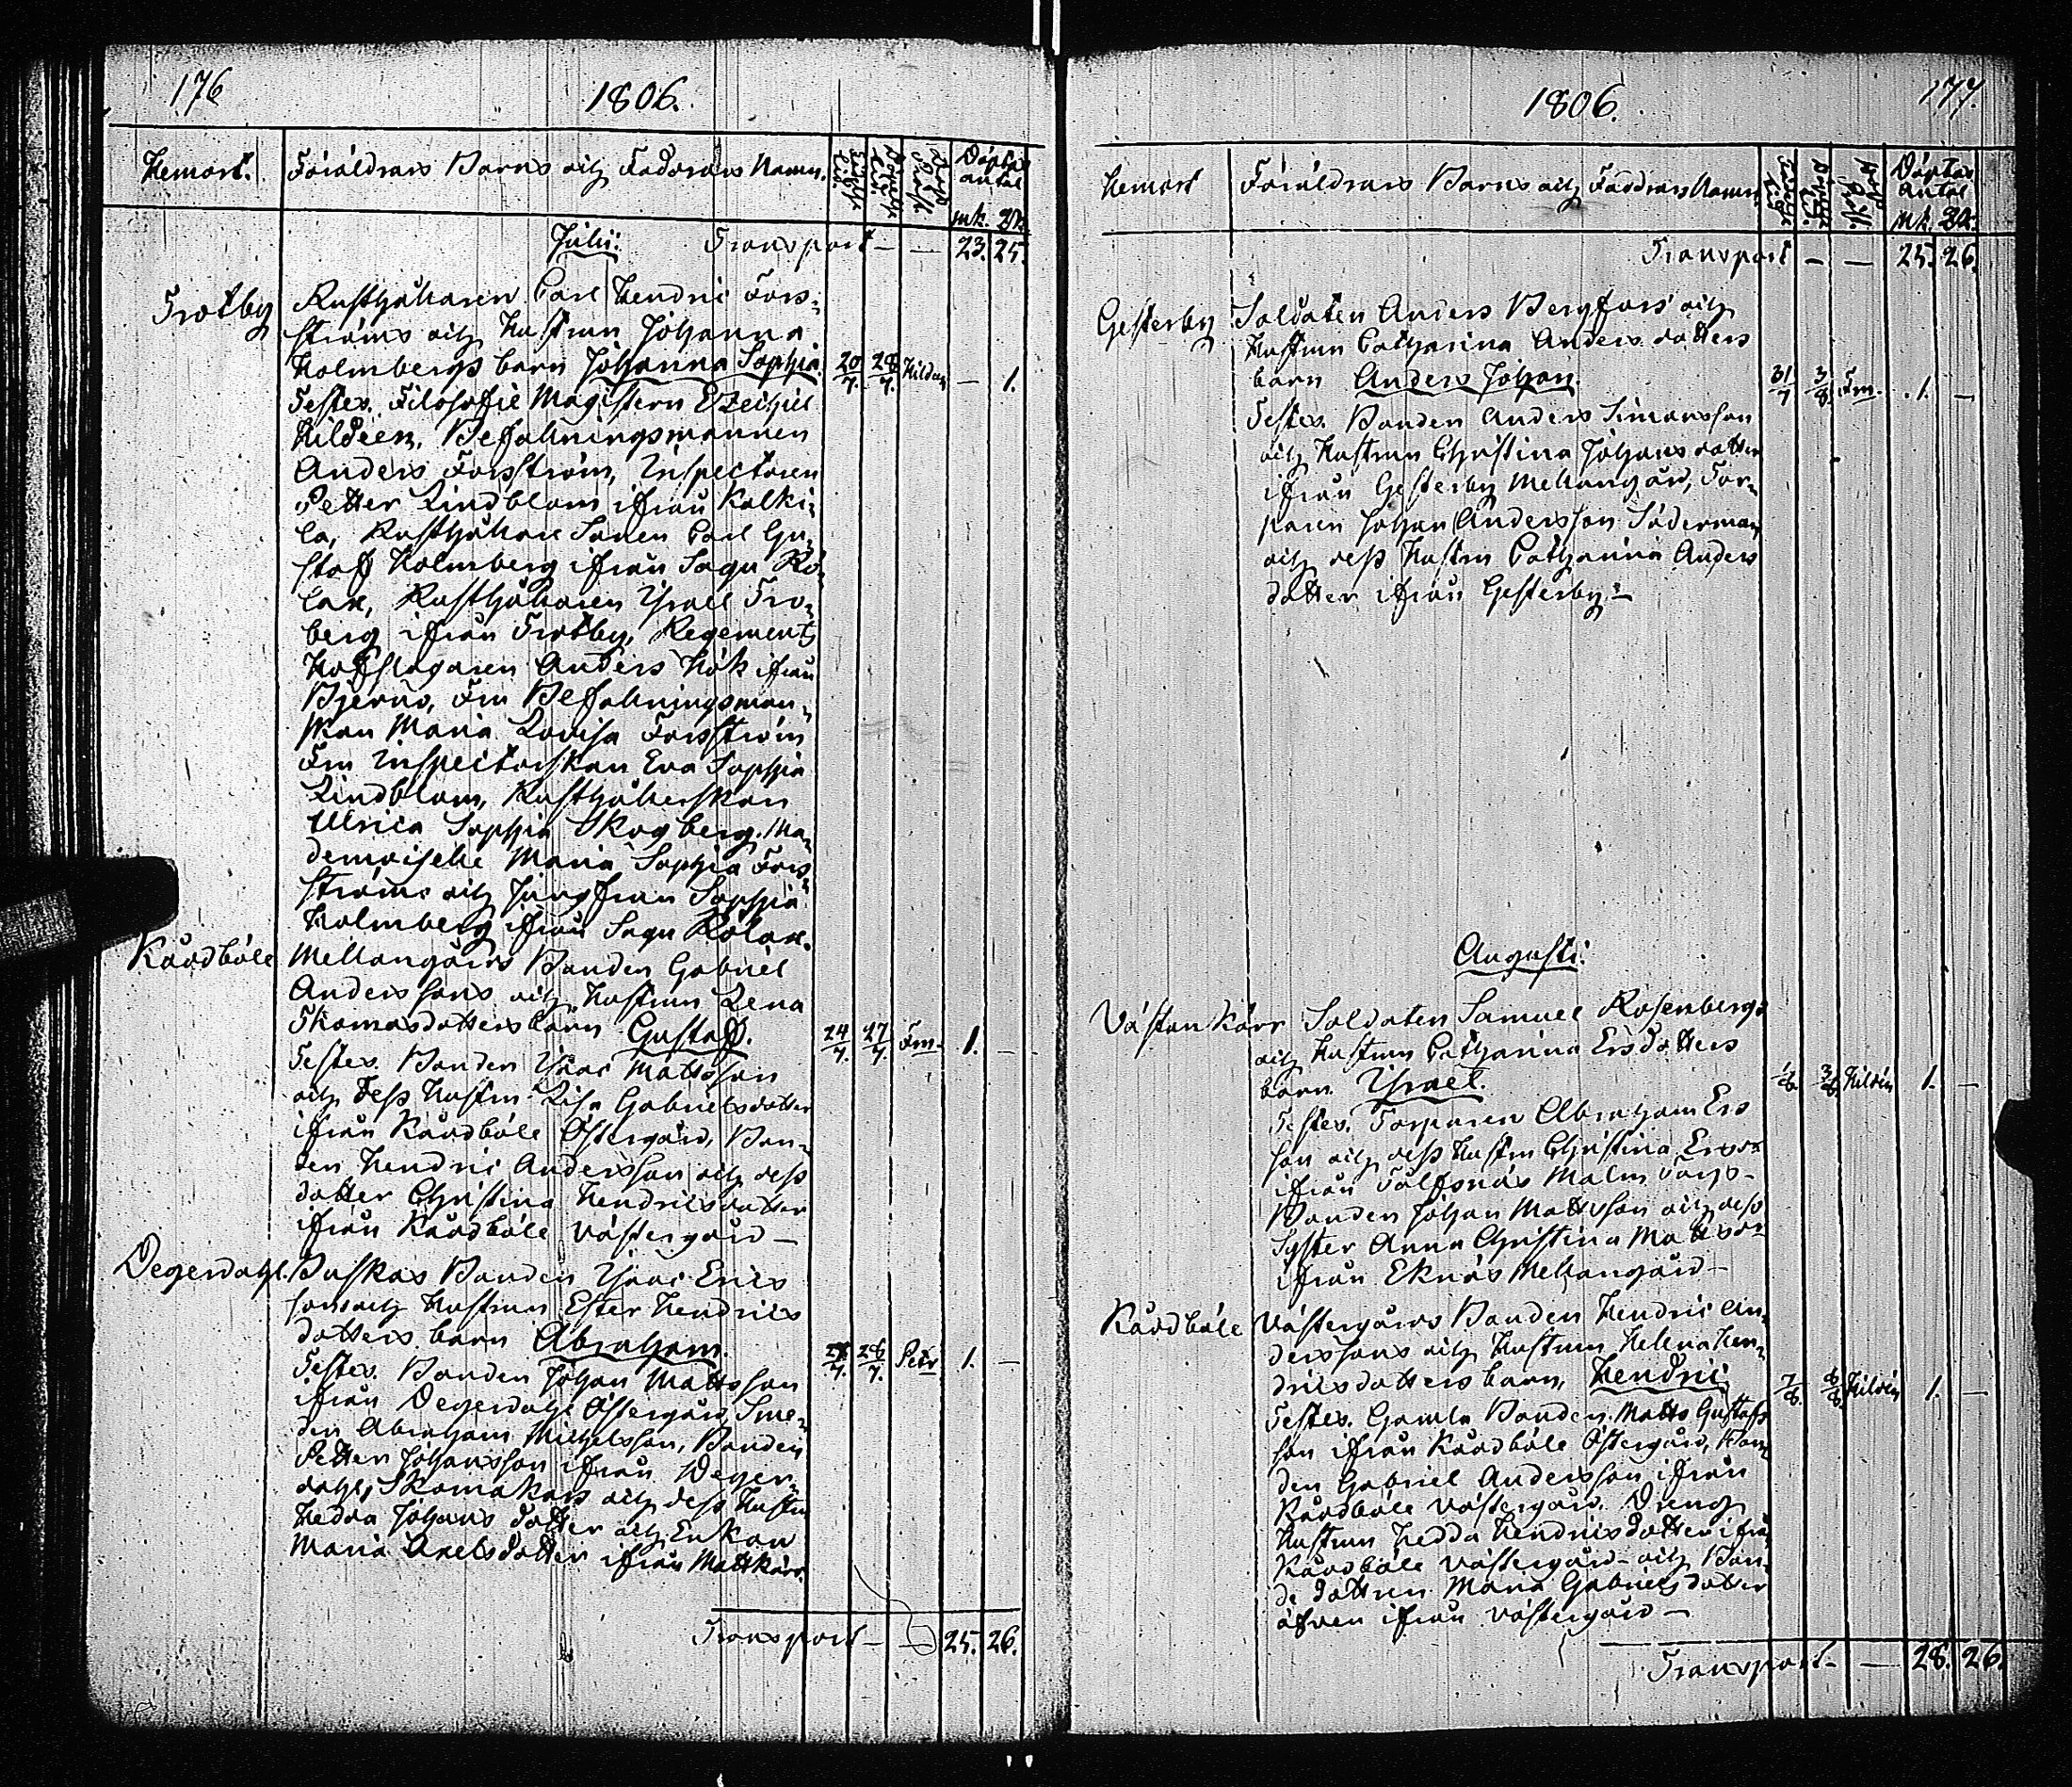 176
1806.
Hemort. Föräldrars Barns och Faddrars Namn. Döptas antal
mk. Qk.
Julii: Transport — — 23. 25.
Trotby Rusthållaren Carl Hendric Fors-
ströms och Hustrun Johanna
Holmbergs barn Johanna Sophia 20/7. 28/7. Hildeen — 1.
Testes. Filosofie Magistern Ezechiel
Hildeen, Befallningsmannen
Anders Forsström, Inspectoren
Petter Lindblom ifrån Kalki-
la, Rusthållare Sonen Carl Gu-
staf Holmberg ifrån Sagu Rö-
lax, Rusthållaren Israel Tro-
berg ifrån Trotby, Regements
Hofslagaren Anders Hök ifrån
Bjernå, Fru Befallningsman-
skan Maria Lovisa Forsström
Fru Inspectorskan Eva Sophia
Lindblom, Rusthållerskan
Ulrica Sophia Skogberg, Ma-
demoiselle Maria Sophia Fors-
ströms och Jungfrun Sophia
Holmberg ifrån Sagu Rölax.
Kårdböle Mellangårds Bonden Gabriel
Anderssons och Hustrun Lena
Thomasdotters barn Gustaff. 24/7. 27/7. Fm. 1. —
Testes. Bonden Isaac Mattsson
och dess Hustru Lisa Gabrielsdotter
ifrån Kårdböle Östergård, Bon-
den Hendric Andersson och dess
dotter Christina Hendricsdotter
ifrån Kårdböle Västergård —
Degerdahl. Buskas Bonden Isaac Erics
sons och Hustrun Ester Hendrics
dotters barn Abraham. 28/7. Petr 1. —
Testes. Bonden Johan Mattsson
ifrån Degerdahl Östergård, Sme-
den Abraham Michelsson, Bonden
Petter Johansson ifrån Deger-
dahl, Skomakars och dess Hustru
Hedda Johans dotter och Enkan
Maria Axelsdotter ifrån Mattkärr.
Transport — — 25. 26.
1806. 177.
Hemort Föräldrars Barns och Faddrars Namn. Döptas antal
Mk. Qk.
Transport — — 25. 26.
Gesterby Soldaten Anders Bergfors och
Hustrun Catharina Anders dotters
barn Anders Johan. 31/7 3/8. Fm. 1. —
Testes. Bonden Anders Simonsson
och Hustrun Christina Johans dotter
ifrån Gesterby Mellangård, Tor-
paren Johan Andersson Söderman
och dess Hustru Catharina Anders
dotter ifrån Gesterby —
Augusti:
Västankärr Soldaten Samuel Rosenbergs
och Hustrun Catharina Ersdotters
barn. Israel. 1/8. 3/8. Hildén 1. —
Testes. Torparen Abraham Ers
son och dess Hustru Christina Ersdr
ifrån Falksnäs Malm torp —
Bonden Johan Mattsson och dess
Syster Anna Christina Mattsdr
ifrån Eknäs Mellangård —
Kårdböle Västergårds Bonden Hendric An-
derssons och Hustrun Helena Hen-
dricsdotters barn, Hendric 7/8. 8/8. Hildén 1. —
Testes. Gamla Bonden Matts Gustafs
son ifrån Kårdböle Östergård, Bon-
den Gabriel Andersson ifrån
Kårdböle Västergård. Dreng
Hustrun Hedda Hendricsdotter ifrån
Kårdböle Västergård — och Bon-
de dottren Maria Gabriels dotter
äfven ifrån Västergård —
Transport — — 28. 26.